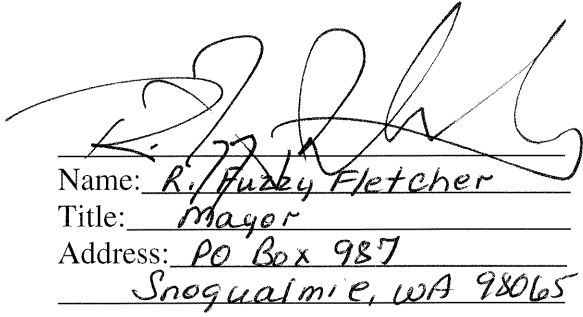 Name: R. Fuzzy Fletcher
Title: Mayor
Address: PO Box 987
Snoqualmie, WA 98065